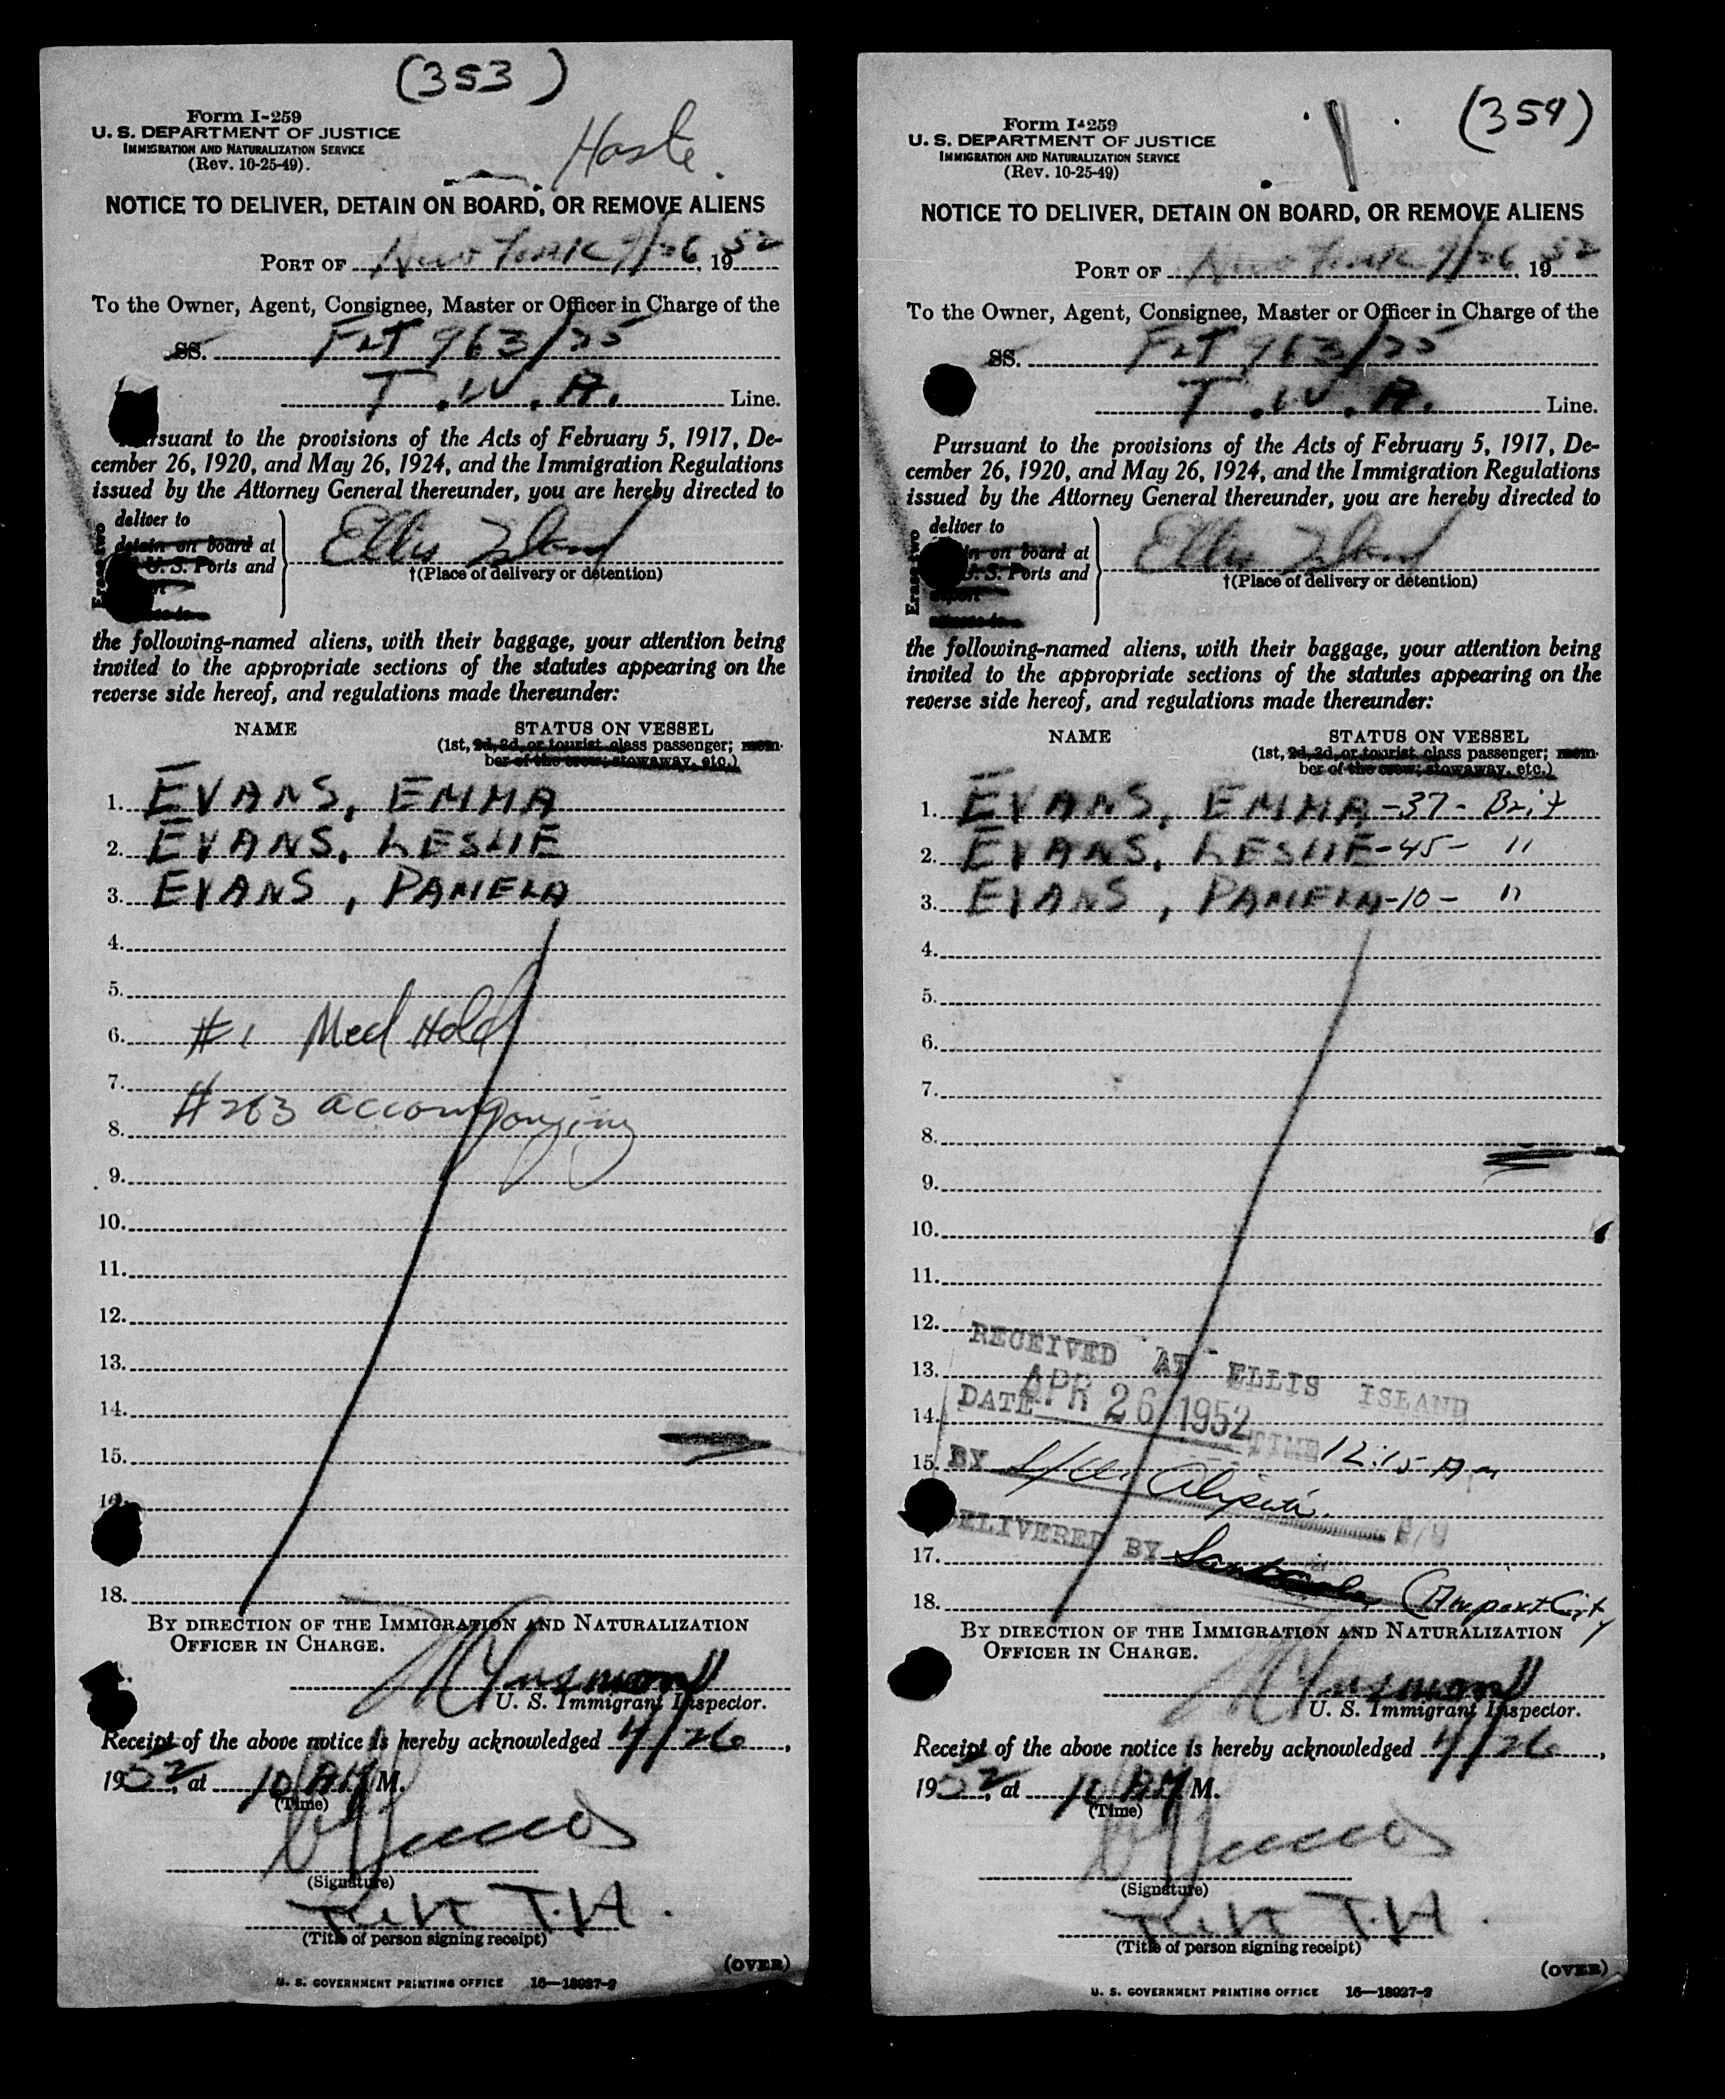 (353)
Form I-259
U. S. DEPARTMENT OF JUSTICE
IMMIGRATION AND NATURALIZATION SERVICE
(Rev. 10-25-49).
NOTICE TO DELIVER, DETAIN ON BOARD, OR REMOVE ALIENS
PORT OF New York 4/26, 1952
To the Owner, Agent, Consignee, Master or Officer in Charge of the
SS. FLT 963/25
T.W.A. Line.
Pursuant to the provisions of the Acts of February 5, 1917, De-
cember 26, 1920, and May 26, 1924, and the Immigration Regulations
issued by the Attorney General thereunder, you are hereby directed to
Erase two
deliver to
detain on board at
U. S. Ports and
Ellis Island
†(Place of delivery or detention)
the following-named aliens, with their baggage, your attention being
invited to the appropriate sections of the statutes appearing on the
reverse side hereof, and regulations made thereunder:
NAME STATUS ON VESSEL
(1st, 2d, 3d, or tourist class passenger; mem-
ber of the crew; stowaway, etc.)
1. EVANS, EMMA
2. EVANS, LESLIE
3. EVANS, PAMELA
4.
5.
6. #1 Med Hold
7.
8. #2&3 accompanying
9.
10.
11.
12.
13.
14.
15.
16.
18.
BY DIRECTION OF THE IMMIGRATION AND NATURALIZATION
OFFICER IN CHARGE.
U. S. Immigrant Inspector.
Receipt of the above notice is hereby acknowledged 4/26,
1952, at 10 AM M.
(Time)
(Signature)
T.H.
(Title of person signing receipt)
(OVER)
U. S. GOVERNMENT PRINTING OFFICE 16—18927-2
(354)
Form I-259
U. S. DEPARTMENT OF JUSTICE
IMMIGRATION AND NATURALIZATION SERVICE
(Rev. 10-25-49)
NOTICE TO DELIVER, DETAIN ON BOARD, OR REMOVE ALIENS
PORT OF New York 4/26, 1952
To the Owner, Agent, Consignee, Master or Officer in Charge of the
SS. FLT 963/25
T.W.A. Line.
Pursuant to the provisions of the Acts of February 5, 1917, De-
cember 26, 1920, and May 26, 1924, and the Immigration Regulations
issued by the Attorney General thereunder, you are hereby directed to
Erase two
deliver to
in on board at
U. S. Ports and
Ellis Island
†(Place of delivery or detention)
the following-named aliens, with their baggage, your attention being
invited to the appropriate sections of the statutes appearing on the
reverse side hereof, and regulations made thereunder:
NAME STATUS ON VESSEL
(1st, 2d, 3d, or tourist class passenger; mem-
ber of the crew; stowaway, etc.)
1. EVANS, EMMA -37- Brit
2. EVANS, LESLIE -45- "
3. EVANS, PAMELA -10- "
4.
5.
6.
7.
8.
9.
10.
11.
12.
RECEIVED AT ELLIS ISLAND
13.
DATE APR 26 1952 TIME 12:15 AM
14.
15. BY
DELIVERED BY (Airport City
17.
18.
BY DIRECTION OF THE IMMIGRATION AND NATURALIZATION
OFFICER IN CHARGE.
U. S. Immigrant Inspector.
Receipt of the above notice is hereby acknowledged 4/26,
1952, at 10 AM M.
(Time)
(Signature)
T.H.
(Title of person signing receipt)
(OVER)
U. S. GOVERNMENT PRINTING OFFICE 16—18927-2